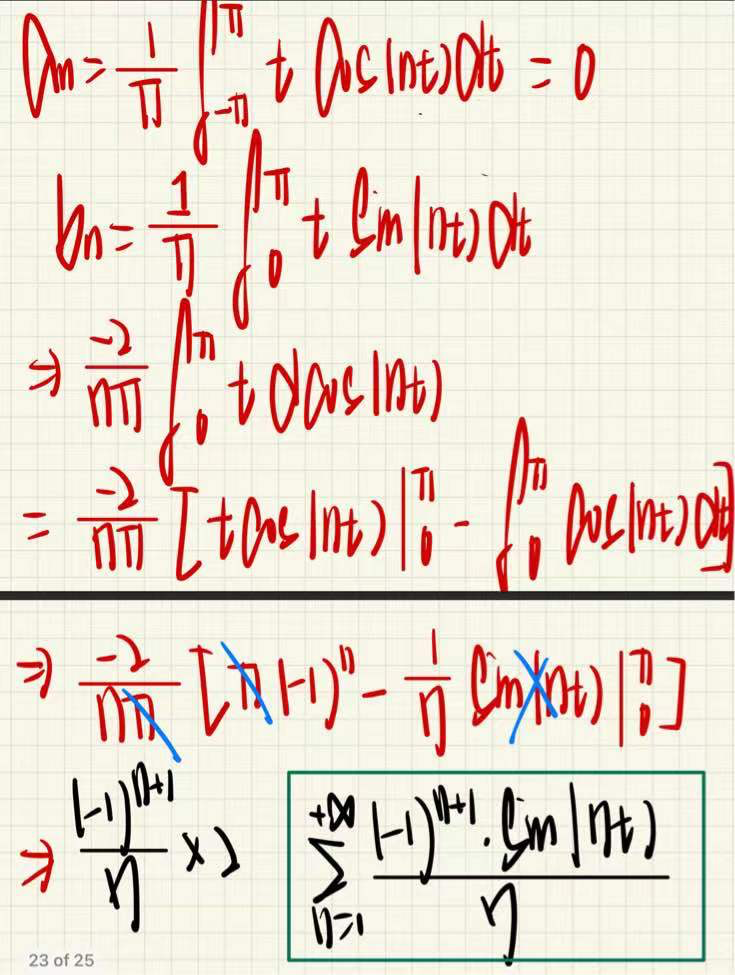 aₙ = 1/π ∫_{-π}^{π} t cos(nt) dt = 0
bₙ = 1/π ∫_{0}^{π} t sin(nt) dt
⇒ -2/(nπ) ∫_{0}^{π} t d cos(nt)
= -2/(nπ) [ t cos(nt) |_{0}^{π} - ∫_{0}^{π} cos(nt) dt ]
⇒ -2/(nπ) [ π (-1)ⁿ - 1/n sin(nt) |_{0}^{π} ]
⇒ (-1)^{n+1}/n × 2
∑_{n=1}^{+∞} (-1)^{n+1} · sin(nt) / n
23 of 25